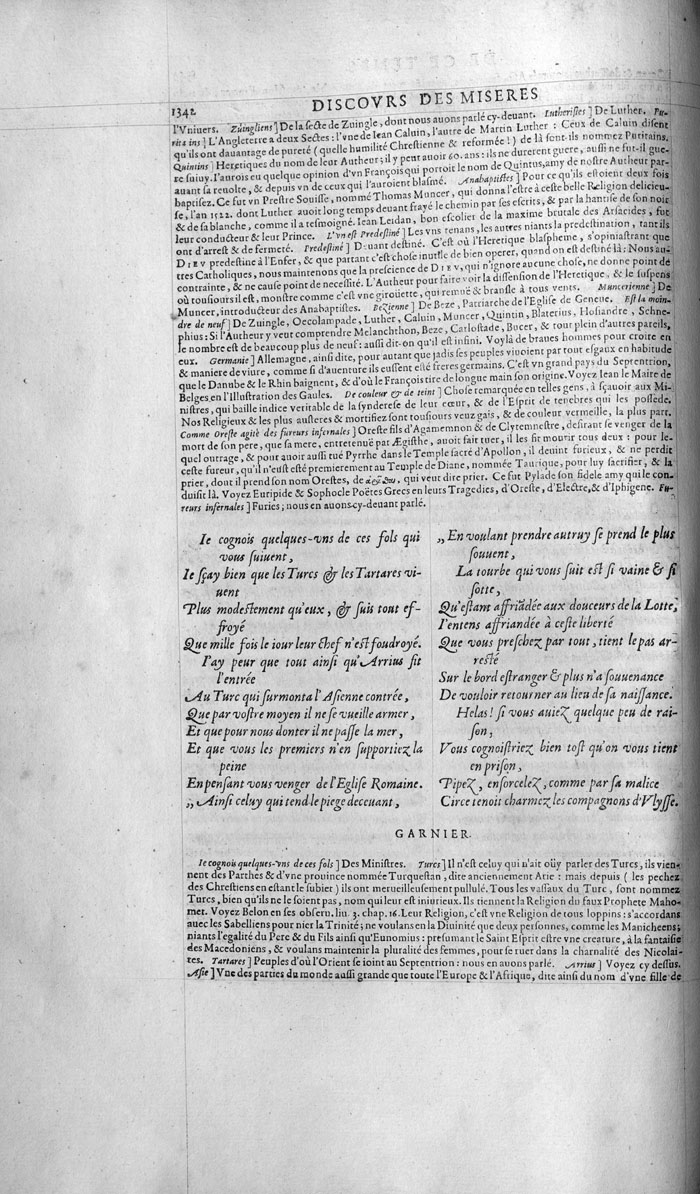 1342
DISCOVRS DES MISERES
l'Vniuers. Züingliens] De la secte de Zuingle, dont nous auons parlé cy-deuant. Lutheristes] De Luther. Pu-
ritains] L'Angleterre a deux Sectes: l'vne de Iean Caluin, l'autre de Martin Luther: Ceux de Caluin disent
qu'ils ont dauantage de pureté (quelle humilité Chrestienne & reformée!) de là sont-ils nommez Puritains.
Quintins] Heretiques du nom de leur Autheur; il y peut auoir 60. ans: ils ne durerent guere, aussi ne fut-il gue-
re suiuy. I'aurois eu quelque opinion d'vn François qui portoit le nom de Quintus, amy de nostre Autheur par-
auant sa reuolte, & depuis vn de ceux qui l'auroient blasmé. Anabaptistes] Pour ce qu'ils estoient deux fois
baptisez. Ce fut vn Prestre Souisse, nommé Thomas Muncer, qui donna l'estre à ceste belle Religion delicieu-
se, l'an 1522. dont Luther auoit long temps deuant frayé le chemin par ses escrits, & par la hantise de son noir
& de sa blanche, comme il a tesmoigné. Iean Leidan, bon escolier de la maxime brutale des Arsacides, fut
leur conducteur & leur Prince. L'vn est Predestiné] Les vns tenans, les autres niants la predestination, tant ils
ont d'arrest & de fermeté. Predestiné] Deuant destiné. C'est où l'Heretique blaspheme, s'opiniastrant que
DIEV predestine à l'Enfer, & que partant c'est chose inutile de bien operer, quand on est destiné là: Nous au-
tres Catholiques, nous maintenons que la prescience de DIEV, qui n'ignore aucune chose, ne donne point de
contrainte, & ne cause point de necessité. L'Autheur pour faire voir la dissension de l'Heretique, & le suspens
où tousiours il est, monstre comme c'est vne giroüette, qui remuë & bransle à tous vents. Muncerienne] De
Muncer, introducteur des Anabaptistes. Bezienne] De Beze, Patriarche de l'Eglise de Geneue. Est la moin-
dre de neuf] De Zuingle, Oecolampade, Luther, Caluin, Muncer, Quintin, Blaterius, Hosiandre, Schne-
phius: Si l'Autheur y veut comprendre Melanchthon, Beze, Carlostade, Bucer, & tout plein d'autres pareils,
le nombre est de beaucoup plus de neuf: aussi dit-on qu'il est infini. Voylà de braues hommes pour croire en
eux. Germanie] Allemagne, ainsi dite, pour autant que jadis ses peuples viuoient par tout esgaux en habitude
& maniere de viure, comme si d'auenture ils eussent esté freres germains. C'est vn grand pays du Septentrion,
que le Danube & le Rhin baignent, & d'où le François tire de longue main son origine. Voyez Iean le Maire de
Belges en l'Illustration des Gaules. De couleur & de teint] Chose remarquée en telles gens, à sçauoir aux Mi-
nistres, qui baille indice veritable de la synderese de leur cœur, & de l'Esprit de tenebres qui les possede.
Nos Religieux & les plus austeres & mortifiez sont tousiours veuz gais, & de couleur vermeille, la plus part.
Comme Oreste agité des fureurs infernales] Oreste fils d'Agamemnon & de Clytemnestre, desirant se venger de la
mort de son pere, que sa mere, entretenuë par Ægisthe, auoit fait tuer, il les fit mourir tous deux: pour le-
quel outrage, & pour auoir aussi tué Pyrrhe dans le Temple sacré d'Apollon, il deuint furieux, & ne perdit
ceste fureur, qu'il n'eust esté premierement au Temple de Diane, nommée Taurique, pour luy sacrifier, & la
prier, dont il prend son nom Orestes, de qui veut dire prier. Ce fut Pylade son fidele amy qui le con-
duisit là. Voyez Euripide & Sophocle Poëtes Grecs en leurs Tragedies, d'Oreste, d'Electre, & d'Iphigene. Fu-
reurs infernales] Furies; nous en auons cy-deuant parlé.
Ie cognois quelques-vns de ces fols qui
vous suiuent,
Ie sçay bien que les Turcs & les Tartares vi-
uent
Plus modestement qu'eux, & suis tout ef-
froyé
Que mille fois le iour leur chef n'est foudroyé.
I'ay peur que tout ainsi qu'Arrius fit
l'entrée
Au Turc qui surmonta l'Asienne contrée,
Que par vostre moyen il ne se vueille armer,
Et que pour nous donter il ne passe la mer,
Et que vous les premiers n'en supportiez la
peine
En pensant vous venger de l'Eglise Romaine.
„ Ainsi celuy qui tend le piege deceuant,
„ En voulant prendre autruy se prend le plus
souuent,
La tourbe qui vous suit est si vaine & si
sotte,
Qu'estant affriädée aux douceurs de la Lotte,
I'entens affriandée à ceste liberté
Que vous preschez par tout, tient le pas ar-
resté
Sur le bord estranger & plus n'a souuenance
De vouloir retourner au lieu de sa naissance.
Helas! si vous auiez quelque peu de rai-
son,
Vous cognoistriez bien tost qu'on vous tient
en prison,
Pipez, ensorcelez, comme par sa malice
Circe tenoit charmez les compagnons d'Vlysse.
GARNIER.
Ie cognois quelques-vns de ces fols] Des Ministres. Turcs] Il n'est celuy qui n'ait oüy parler des Turcs, ils vien-
nent des Parthes & d'vne prouince nommée Turquestan, dite anciennement Atie: mais depuis (les pechez
des Chrestiens en estant le subiet) ils ont merueilleusement pullulé. Tous les vassaux du Turc, sont nommez
Turcs, bien qu'ils ne le soient pas, nom qui leur est iniurieux. Ils tiennent la Religion du faux Prophete Maho-
mer. Voyez Belon en ses obseru. liu. 3. chap. 16. Leur Religion, c'est vne Religion de tous loppins: s'accordans
auec les Sabelliens pour nier la Trinité; ne voulans en la Diuinité que deux personnes, comme les Manicheens;
niants l'egalité du Pere & du Fils ainsi qu'Eunomius: presumant le Saint Esprit estre vne creature, à la fantaisie
des Macedoniens, & voulans maintenir la pluralité des femmes, pour se tuer dans la charnalité des Nicolai-
tes. Tartares] Peuples d'où l'Orient se ioint au Septentrion: nous en auons parlé. Arrius] Voyez cy dessus.
Asie] Vne des parties du monde aussi grande que toute l'Europe & l'Afrique, dite ainsi du nom d'vne fille de